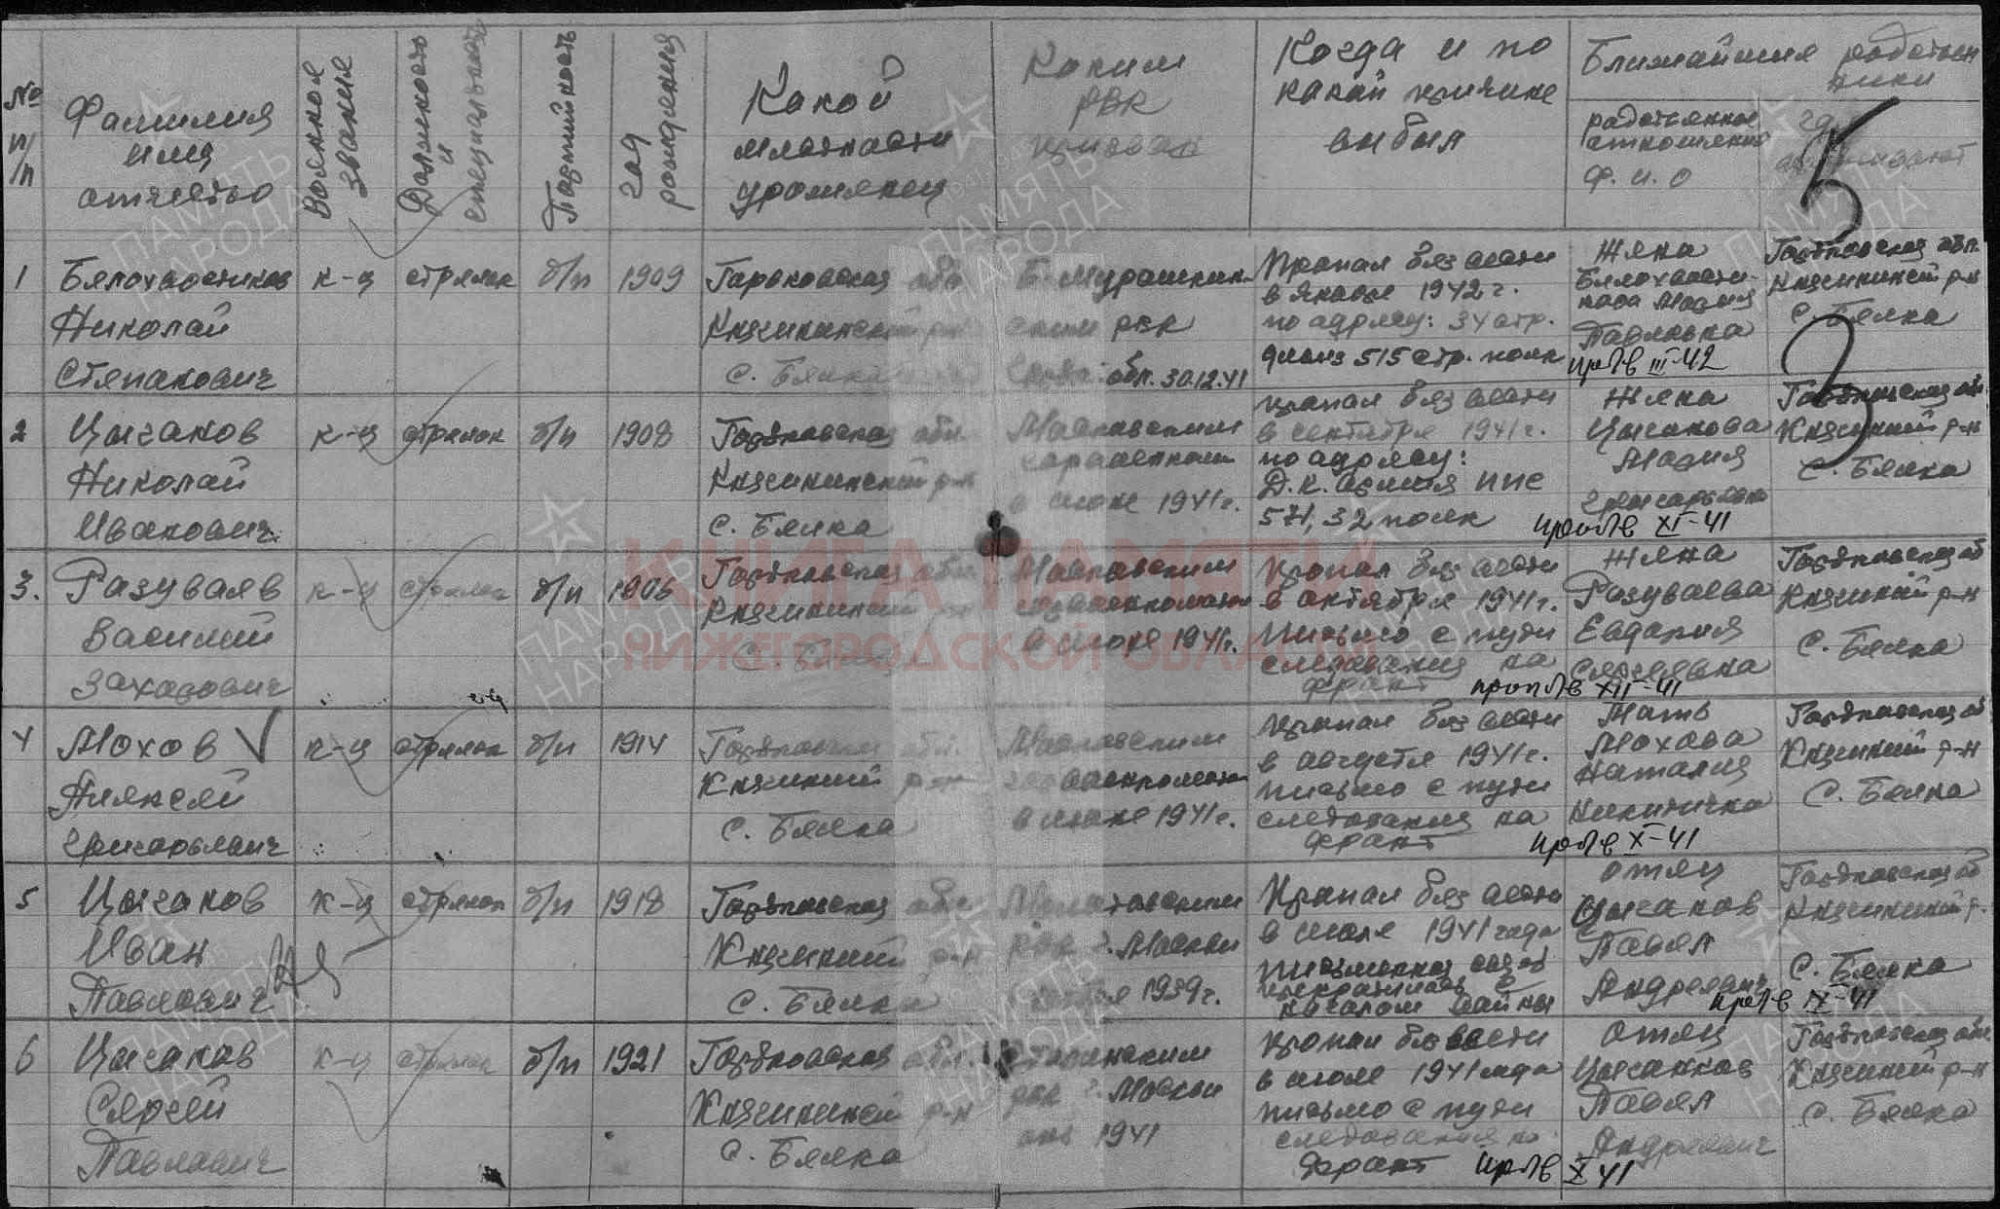 № п/п
Фамилия имя отчество
Воинское звание
Должность и специальность
Партийность
год рождения
Какой местности уроженец
Каким РВК призван
Когда и по какой причине выбыл
Ближайшие родственники
родственное отношение ф. и. о
5
3
1 Белохвостиков к-ц стрелок б/п 1909 Горьковская обл. Б-Мурашкин- Пропал без вести Жена Горьковская обл.
Николай Княгининский р-н ским РВК в январе 1942 г. Белохвости- Княгининский р-н
Степанович с. Белка обл. 30.12.41 по адресу: 34 стр. кова Мария с. Белка
дивиз 515 стр. полк Павловна
проп в III-42
2 Цыганов к-ц стрелок б/п 1908 Горьковская обл. Московским пропал без вести Жена Горьковская обл
Николай Княгининский р-н горвоенкомат в сентябре 1941 г. Цыганова Княгинский р-н
Иванович с. Белка в июне 1941 г. по адресу: Мария с. Белка
Д.К. армия ппс Григорьевна
571, 32 полк
проп в XI-41
3. Разуваев к-ц стрелок б/п 1906 Горьковская обл. Московским пропал без вести Жена Горьковская об
Василий Княгининский р-н горвоенкоматом в октябре 1941 г. Разуваева Княгинский р-н
Захарович с. Белка в июне 1941 г. Письмо с пути Евдокия с. Белка
следования на Сергеевна
фронт
проп в XII-41
4 Мохов V к-ц стрелок б/п 1914 Горьковская обл. Московским пропал без вести Мать Горьковская об
Алексей Княгинский р-н горвоенкоматом в августе 1941 г. Мохова Княгинский р-н
Григорьевич с. Белка в июне 1941 г. письмо с пути Наталия с. Белка
следования на Никитична
фронт
проп в X-41
5 Цыганов к-ц стрелок б/п 1918 Горьковская обл. Пропал без вести отец Горьковская об
Иван Княгинский р-н РВК г. Москвы в июле 1941 года Цыганов Княгинский р-
Павлович с. Белка 1939 г. письменная связь Павел с. Белка
прекратилась с Андреевич
началом войны
проп в IX-41
6 Цыганов к-ц стрелок б/п 1921 Горьковская обл. пропал без вести отец Горьковская обл.
Сергей Княгинский р-н РВК г. Москвы в июле 1941 года Цыганков Княгинский р-н
Павлович с. Белка 1941 письмо с пути Павел с. Белка
следования на Андреевич
фронт
проп в X 41
ПАМЯТЬ НАРОДА
КНИГА ПАМЯТИ
НИЖЕГОРОДСКОЙ ОБЛАСТИ